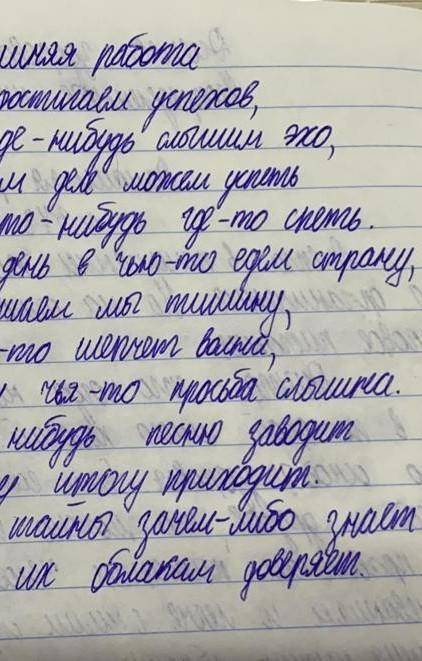 шняя работа
остигаем успехов,
де-нибудь слышим эхо,
м деле можем успеть
то-нибудь где-то спеть.
день в чью-то едем страну,
шаем мы тишину,
-то шепчет волна,
чья-то просьба слышна.
нибудь песню заводит
у итогу приходит.
тайны зачем-либо знает
их облакам доверяет.